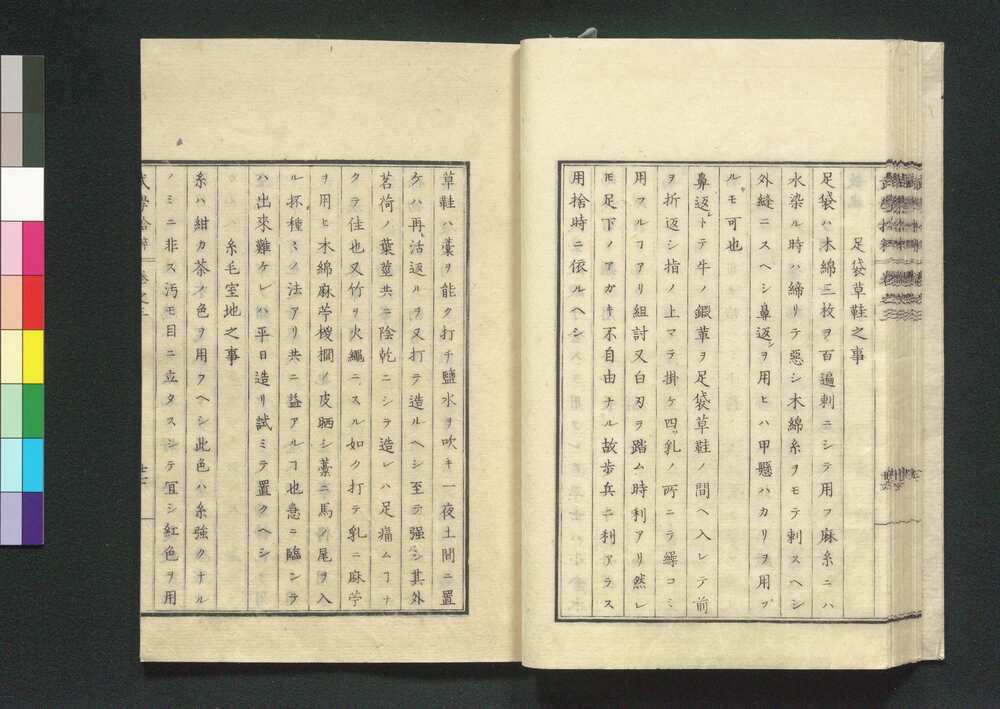 足袋草鞋之事
足袋ハ木綿三枚ヲ百遍刺ニシテ用フ麻糸ニハ
水染ル時ハ縮リテ惡シ木綿糸ヲモテ刺スヘシ
外縫ニスヘシ鼻返シヲ用ヒハ甲懸ハカリヲ用ヅ
ルモ可也
鼻返シトテ牛ノ鍜革ヲ足袋草鞋ノ間ヘ入レテ前
ヲ折返シ指ノ上マテ掛ケ四ツ乳ノ所ニテ繰コミ
用フルヿアリ組討又白刃ヲ踏ム時利アリ然レ
𪜈足下ノアガキ不自由ナル故歩兵ニ利アラス
用捨時ニ依ルヘシ
草鞋ハ藁ヲ能ク打チ鹽水ヲ吹キ一夜土間ニ置
ケハ再ヒ活返ルヲ又打テ造ルヘシ至テ强シ其外
茗荷ノ葉莖共ニ陰乾ニシテ造レハ足痛ムヿナ
クテ佳也又竹ヲ火繩ニスル如ク打テ乳ニ麻苧
ヲ用ヒ木綿麻苧椶櫚ノ皮晒シ藁ニ馬ノ尾ヲ入
ル抔種〻ノ法アリ共ニ益アルヿ也急ニ臨ンテ
ハ出來難ケレハ平日造リ試ミテ置クヘシ
糸毛室地之事
糸ハ紺カ茶ノ色ヲ用フヘシ此色ハ糸強クナル
ノミニ非ス汚モ目ニ立タスシテ宜シ紅色ヲ用